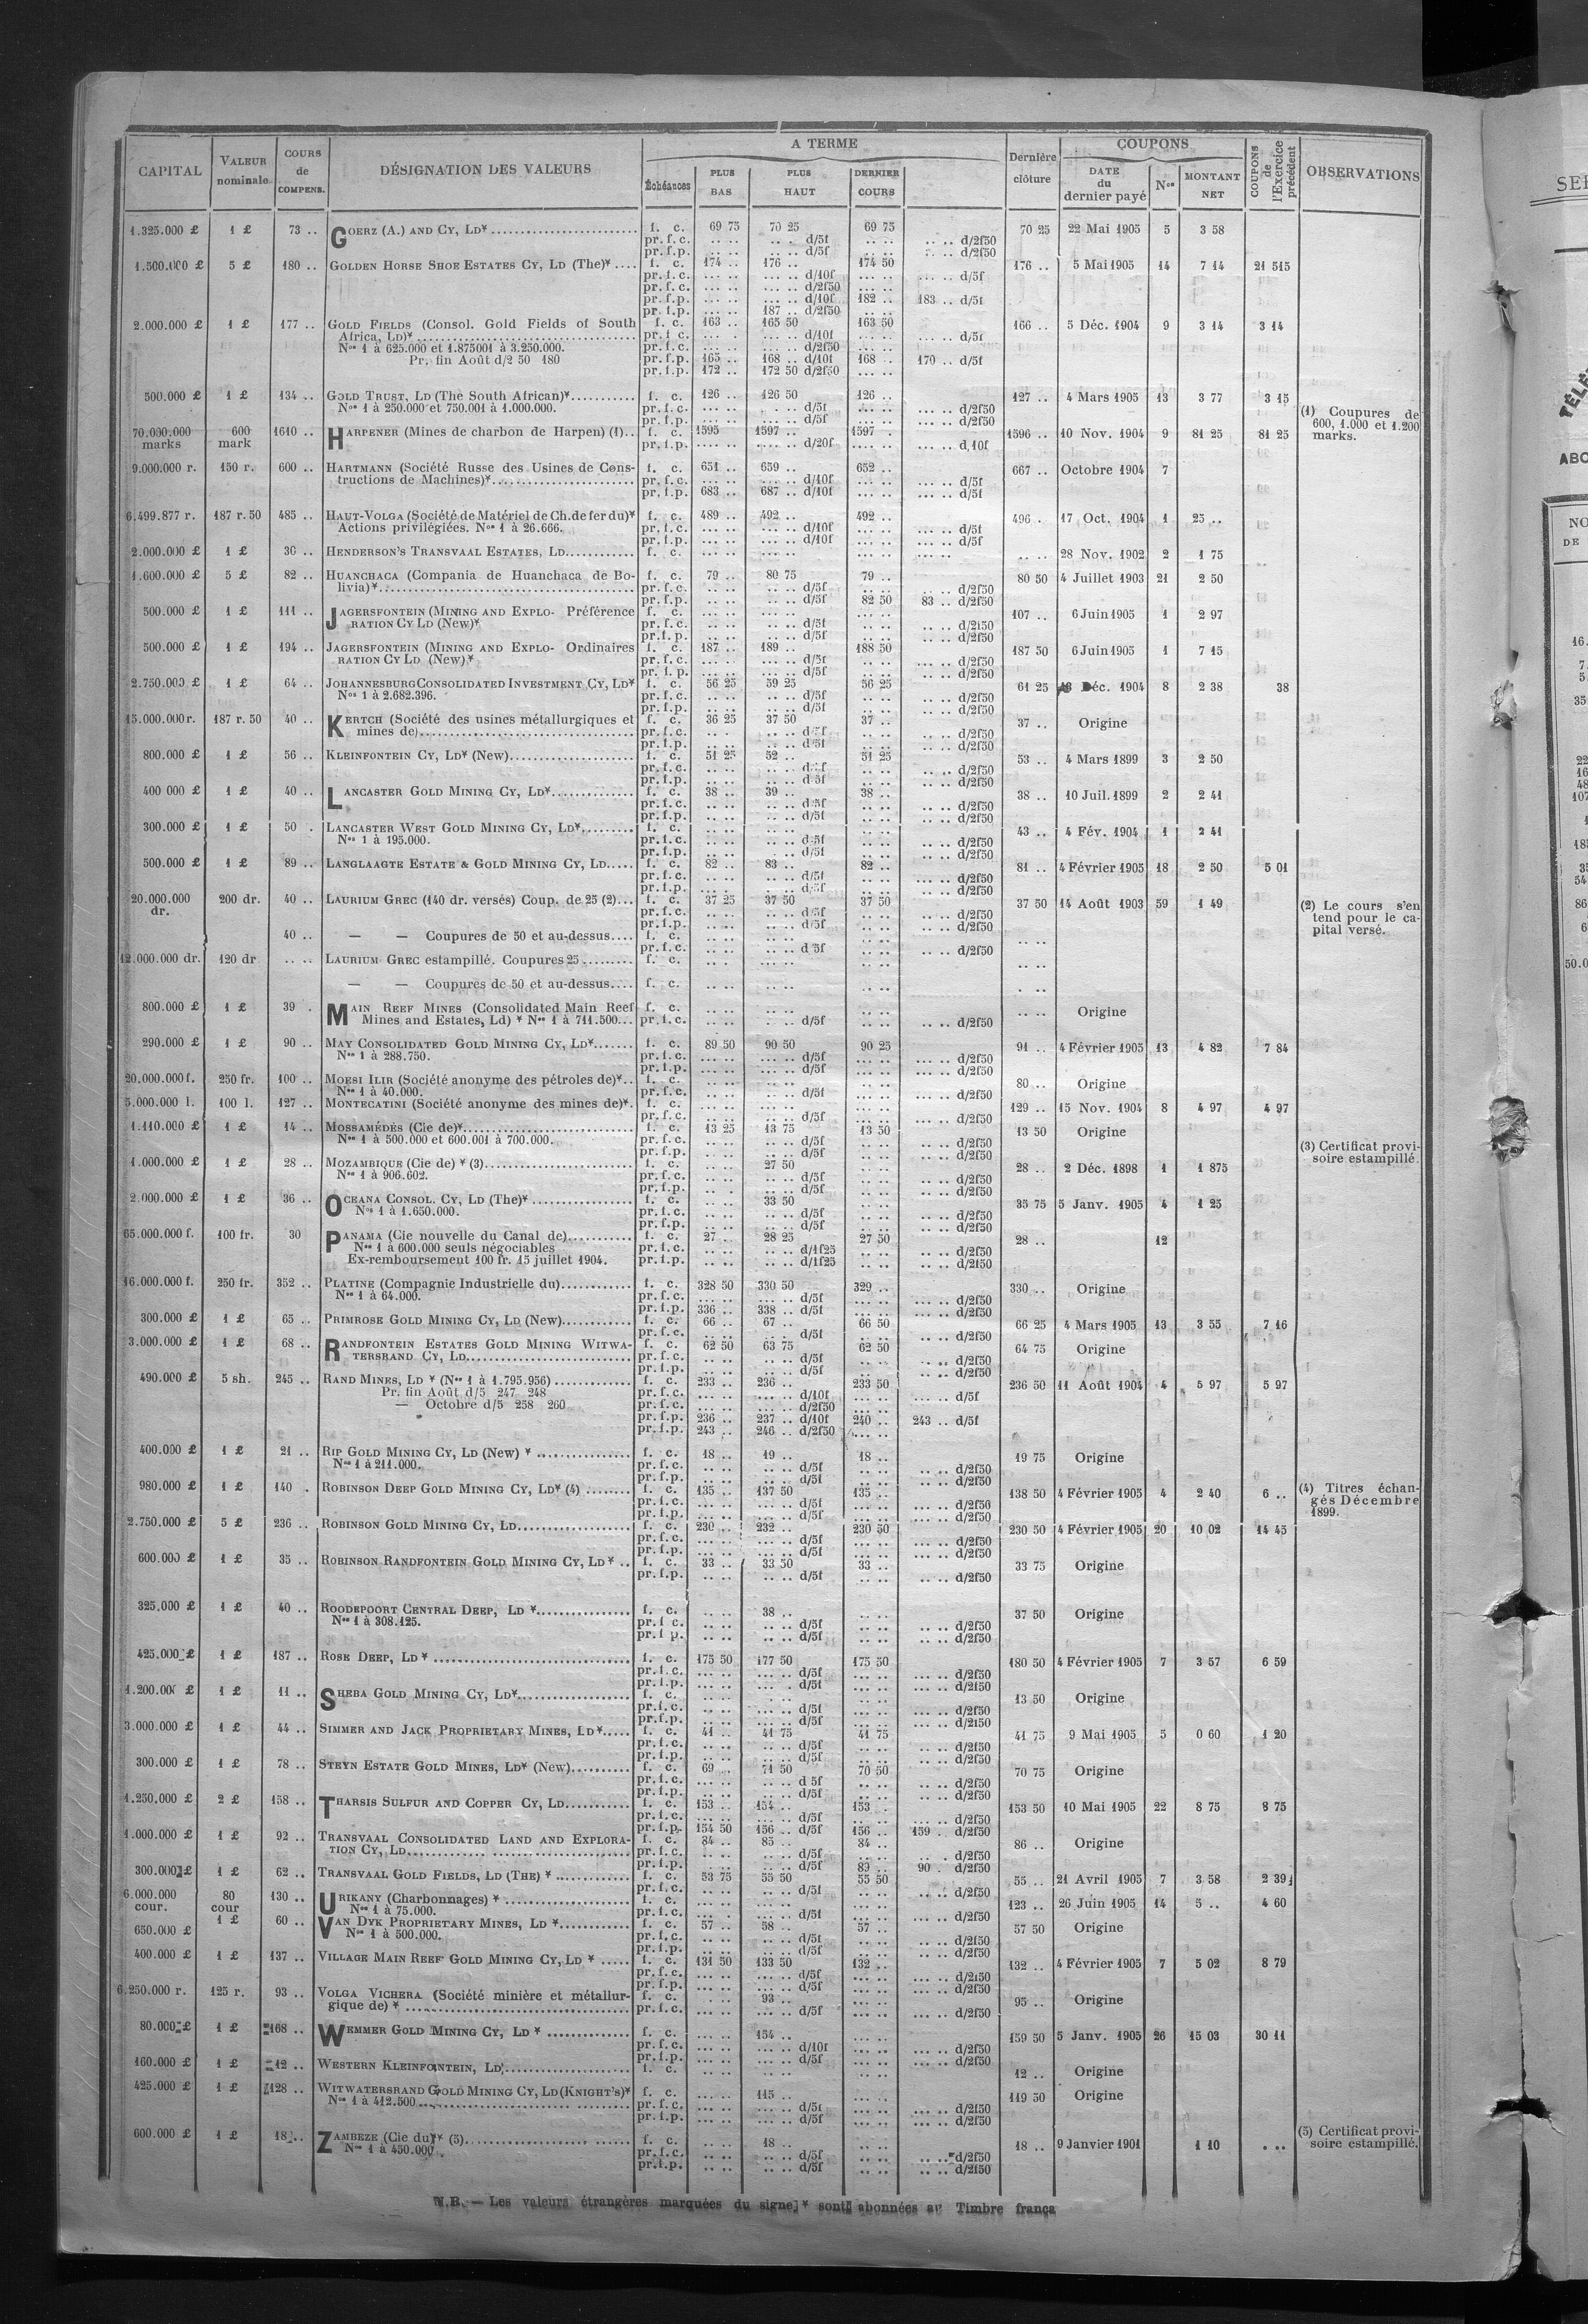 CAPITAL | VALEUR nominale | COURS de COMPENS. | DÉSIGNATION DES VALEURS | A TERME | Dernière clôture | COUPONS | COUPONS de l'Exercice précédent | OBSERVATIONS
Échéances | PLUS BAS | PLUS HAUT | DERNIER COURS | DATE du dernier payé | Nos | MONTANT NET
1.325.000 £ | 1 £ | 73 .. | GOERZ (A.) AND CY, LD* | f. c. | 69 75 | 70 25 | 69 75 | 70 25 | 22 Mai 1905 | 5 | 3 58
pr. f.c. | .. .. | .. . d/5f | .. .. | .. .. d/2f50
pr. f.p. | .. .. | .. .. d/5f | .. .. | .. .. d/2f50
1.500.000 £ | 5 £ | 180 .. | GOLDEN HORSE SHOE ESTATES CY, LD (The)* | f. c. | 174 .. | 176 .. | 174 50 | 176 .. | 5 Mai 1905 | 14 | 7 14 | 21 515
pr. f.c. | ... .. | ... .. d/10f | ... .. | ... .. d/5f
pr. f.c. | ... .. | ... .. d/2f50 | ... ..
pr. f.p. | ... .. | ... .. d/10f | 182 .. | 183 .. d/5f
pr. f.p. | ... .. | 187 .. d/2f50 | ... ..
2.000.000 £ | 1 £ | 177 .. | GOLD FIELDS (Consol. Gold Fields of South | f. c. | 163 .. | 165 50 | 163 50 | 166 .. | 5 Déc. 1904 | 9 | 3 14 | 3 14
Africa, LD)* | pr. f.c. | ... . | ... .. d/10f | ... .. | ... .. d/5f
Nos 1 à 625.000 et 1.875001 à 3.250.000. | pr. f.c. | ... .. | ... .. d/2f50 | ... ..
Pr. fin Août d/2 50 180 | pr. f.p. | 165 .. | 168 .. d/10f | 168 .. | 170 .. d/5f
pr. f.p. | 172 .. | 172 50 d/2f50 | ... ..
500.000 £ | 1 £ | 134 .. | GOLD TRUST, LD (The South African)* | f. c. | 126 .. | 126 50 | 126 | 127 .. | 4 Mars 1905 | 13 | 3 77 | 3 15
Nos 1 à 250.000 et 750.001 à 1.000.000. | pr. f.c. | d/5f | d/2f50 | (1) Coupures de
pr. f.p. | d/5f | d/2f50 | 600, 1.000 et 1.200
70.000.000 marks | 600 mark | 1610 .. | HARPENER (Mines de charbon de Harpen) (1).. | f. c. | 1595 | 1597 .. | 1597 . | 1596 .. | 10 Nov. 1904 | 9 | 81 25 | 81 25 | marks.
pr. f.p. | d/20f | d,10f
9.000.000 r. | 150 r. | 600 .. | HARTMANN (Société Russe des Usines de Cons- | f. c. | 651 .. | 659 .. | 652 .. | 667 .. | Octobre 1904 | 7
tructions de Machines)* | pr. f.c. | d/10f | d/5f
pr. f.p. | 683 .. | 687 .. d/10f | d/5f
6.499.877 r. | 187 r.50 | 485 .. | HAUT-VOLGA (Société de Matériel de Ch. de fer du)* | f. c. | 489 .. | 492 .. | 492 .. | 496 . | 17 Oct. 1904 | 1 | 25 ..
Actions privilégiées. Nos 1 à 26.666. | pr. f.c. | d/10f | d/5f
pr. f.p. | d/10f | d/5f
2.000.000 £ | 1 £ | 36 .. | HENDERSON'S TRANSVAAL ESTATES, LD | f. c. | 28 Nov. 1902 | 2 | 1 75
1.600.000 £ | 5 £ | 82 .. | HUANCHACA (Compania de Huanchaca de Bo- | f. c. | 79 .. | 80 75 | 79 .. | 80 50 | 4 Juillet 1903 | 21 | 2 50
livia)* | pr. f.c. | d/5f | d/2f50
pr. f.p. | d/5f | 82 50 | 83 .. d/2f50
500.000 £ | 1 £ | 111 .. | JAGERSFONTEIN (MINING AND EXPLO- Préférence | f. c. | 107 .. | 6 Juin 1905 | 1 | 2 97
RATION CY LD (New)* | pr. f.c. | d/5f | d/2f50
pr. f. p. | d/5f | d/2f50
500.000 £ | 1 £ | 194 .. | JAGERSFONTEIN (MINING AND EXPLO- Ordinaires | f. c. | 187 .. | 189 .. | 188 50 | 187 50 | 6 Juin 1905 | 1 | 7 15
RATION CY LD (New)* | pr. f.c. | d/5f | d/2f50
pr. f. p. | d/5f | d/2f50
2.750.000 £ | 1 £ | 64 .. | JOHANNESBURG CONSOLIDATED INVESTMENT CY, LD* | f. c. | 56 25 | 59 25 | 56 25 | 61 25 | Déc. 1904 | 8 | 2 38 | 38
Nos 1 à 2.682.396. | pr. f.c. | d/5f | d/2f50
pr. f.p. | d/5f | d/2f50
15.000.000 r. | 187 r. 50 | 40 .. | KERTCH (Société des usines métallurgiques et | f. c. | 36 25 | 37 50 | 37 .. | 37 .. | Origine
mines de) | pr. f.c. | d/5f | d/2f50
pr. f.p. | d/5f | d/2f50
800.000 £ | 1 £ | 56 .. | KLEINFONTEIN CY, LD* (New) | f. c. | 51 25 | 52 .. | 51 25 | 53 .. | 4 Mars 1899 | 3 | 2 50
pr. f.c. | d/5f | d/2f50
pr. f.p. | d/5f | d/2f50
400 000 £ | 1 £ | 40 .. | LANCASTER GOLD MINING CY, LD* | f. c. | 38 .. | 39 .. | 38 .. | 38 .. | 10 Juil. 1899 | 2 | 2 41
pr. f.c. | d/5f | d/2f50
pr. f.p. | d/5f | d/2f50
300.000 £ | 1 £ | 50 . | LANCASTER WEST GOLD MINING CY, LD* | f. c. | 43 .. | 4 Fév. 1904 | 1 | 2 41
Nos 1 à 195.000. | pr. f.c. | d/5f | d/2f50
pr. f.p. | d/5f | d/2f50
500.000 £ | 1 £ | 89 .. | LANGLAAGTE ESTATE & GOLD MINING CY, LD | f. c. | 82 .. | 83 .. | 82 .. | 81 .. | 4 Février 1905 | 18 | 2 50 | 5 01
pr. f.c. | d/5f | d/2f50
pr. f.p. | d/5f | d/2f50
20.000.000 dr. | 200 dr. | 40 .. | LAURIUM GREC (140 dr. versés) Coup. de 25 (2) | f. c. | 37 25 | 37 50 | 37 50 | 37 50 | 14 Août 1903 | 59 | 1 49 | (2) Le cours s'en
pr. f.c. | d/5f | d/2f50 | tend pour le ca-
pr. f.p. | d/5f | d/2f50 | pital versé.
40 .. | — — Coupures de 50 et au-dessus.... | f. c.
pr. f.c. | d 5f | d/2f50
12.000.000 dr. | 120 dr | .. .. | LAURIUM GREC estampillé. Coupures 25 | f. c.
— — Coupures de 50 et au-dessus.... | f. c.
800.000 £ | 1 £ | 39 . | MAIN REEF MINES (Consolidated Main Reef | f. c. | Origine
Mines and Estates, Ld) * Nos 1 à 711.500... | pr. f.c. | d/5f | d/2f50
290.000 £ | 1 £ | 90 .. | MAY CONSOLIDATED GOLD MINING CY, LD* | f. c. | 89 50 | 90 50 | 90 25 | 91 .. | 4 Février 1905 | 13 | 4 82 | 7 84
Nos 1 à 288.750. | pr. f.c. | d/5f | d/2f50
pr. f.p. | d/5f | d/2f50
20.000.000 f. | 250 fr. | 100 .. | MOESI ILIR (Société anonyme des pétroles de)*.. | f. c. | 80 .. | Origine
Nos 1 à 40.000. | pr. f.c. | d/5f | d/2f50
5.000.000 l. | 100 l. | 127 .. | MONTECATINI (Société anonyme des mines de)*. | f. c. | 129 .. | 15 Nov. 1904 | 8 | 4 97 | 4 97
pr. f.c. | d/5f | d/2f50
1.110.000 £ | 1 £ | 14 .. | MOSSAMÉDÈS (Cie de)* | f. c. | 13 25 | 13 75 | 13 50 | 13 50 | Origine
Nos 1 à 500.000 et 600.001 à 700.000. | pr. f.c. | d/5f | d/2f50 | (3) Certificat provi-
pr. f.p. | d/5f | d/2f50 | soire estampillé.
1.000.000 £ | 1 £ | 28 .. | MOZAMBIQUE (Cie de) * (3) | f. c. | 27 50 | 28 .. | 2 Déc. 1898 | 1 | 1 875
Nos 1 à 906.602. | pr. f.c. | d/5f | d/2f50
pr. f.p. | d/5f | d/2f50
2.000.000 £ | 1 £ | 36 .. | OCEANA CONSOL. CY, LD (The)* | f. c. | 33 50 | 35 75 | 5 Janv. 1905 | 4 | 1 25
Nos 1 à 1.650.000. | pr. f.c. | d/5f | d/2f50
pr. f.p. | d/5f | d/2f50
65.000.000 f. | 100 fr. | 30 | PANAMA (Cie nouvelle du Canal de) | f. c. | 27 .. | 28 25 | 27 50 | 28 .. | 12
Nos 1 à 600.000 seuls négociables | pr. f.c. | d/1f25 | d/2f50
Ex-remboursement 100 fr. 15 juillet 1904. | pr. f.p. | d/1f25 | d/2f50
16.000.000 f. | 250 fr. | 352 .. | PLATINE (Compagnie Industrielle du) | f. c. | 328 50 | 330 50 | 329 .. | 330 .. | Origine
Nos 1 à 64.000. | pr. f.c. | d/5f | d/2f50
pr. f.p. | 336 .. | 338 .. d/5f | d/2f50
300.000 £ | 1 £ | 65 .. | PRIMROSE GOLD MINING CY, LD (New) | f. c. | 66 .. | 67 .. | 66 50 | 66 25 | 4 Mars 1905 | 13 | 3 55 | 7 16
pr. f.c. | d/5f | d/2f50
3.000.000 £ | 1 £ | 68 .. | RANDFONTEIN ESTATES GOLD MINING WITWA- | f. c. | 62 50 | 63 75 | 62 50 | 64 75 | Origine
TERSRAND CY, LD | pr. f.c. | d/5f | d/2f50
pr. f.p. | d/5f | d/2f50
490.000 £ | 5 sh. | 245 .. | RAND MINES, LD * (Nos 1 à 1.795.956) | f. c. | 233 .. | 236 .. | 233 50 | 236 50 | 11 Août 1904 | 4 | 5 97 | 5 97
Pr. fin Août d/5 247 248 | pr. f.c. | d/10f | d/5f
— Octobre d/5 258 260 | pr. f.c. | d/2f50
pr. f.p. | 236 .. | 237 .. d/10f | 240 .. | 243 .. d/5f
pr. f.p. | 243 .. | 246 .. d/2f50
400.000 £ | 1 £ | 21 .. | RIP GOLD MINING CY, LD (New) * | f. c. | 18 .. | 19 .. | 18 .. | 19 75 | Origine
Nos 1 à 211.000. | pr. f.c. | d/5f | d/2f50
pr. f.p. | d/5f | d/2f50
980.000 £ | 1 £ | 140 . | ROBINSON DEEP GOLD MINING CY, LD* (4) | f. c. | 135 .. | 137 50 | 135 .. | 138 50 | 4 Février 1905 | 4 | 2 40 | 6 .. | (4) Titres échan-
pr. f.c. | d/5f | d/2f50 | gés Décembre
pr. f.p. | d/5f | d/2f50 | 1899.
2.750.000 £ | 5 £ | 236 .. | ROBINSON GOLD MINING CY, LD | f. c. | 230 .. | 232 .. | 230 50 | 230 50 | 4 Février 1905 | 20 | 10 02 | 14 45
pr. f.c. | d/5f | d/2f50
pr. f.p. | d/5f | d/2f50
600.000 £ | 1 £ | 35 .. | ROBINSON RANDFONTEIN GOLD MINING CY, LD * .. | f. c. | 33 .. | 33 50 | 33 .. | 33 75 | Origine
pr. f.p. | d/5f | d/2f50
325,000 £ | 1 £ | 40 .. | ROODEPOORT CENTRAL DEEP, LD * | f. c. | 38 .. | 37 50 | Origine
Nos 1 à 308.125. | pr. f c. | d/5f | d/2f50
pr. f p. | d/5f | d/2f50
425.000 £ | 1 £ | 187 .. | ROSE DEEP, LD * | f. c. | 175 50 | 177 50 | 175 50 | 180 50 | 4 Février 1905 | 7 | 3 57 | 6 59
pr. f.c. | d/5f | d/2f50
pr. f.p. | d/5f | d/2f50
1.200.000 £ | 1 £ | 11 .. | SHEBA GOLD MINING CY, LD* | f. c. | 13 50 | Origine
pr. f.c. | d/5f | d/2f50
pr. f.p. | d/5f | d/2f50
3.000.000 £ | 1 £ | 44 .. | SIMMER AND JACK PROPRIETARY MINES, LD* | f. c. | 41 .. | 41 75 | 41 75 | 41 75 | 9 Mai 1905 | 5 | 0 60 | 1 20
pr. f.c. | d/5f | d/2f50
pr. f.p. | d/5f | d/2f50
300.000 £ | 1 £ | 78 .. | STEYN ESTATE GOLD MINES, LD* (New) | f. c. | 69 . | 71 50 | 70 50 | 70 75 | Origine
pr. f.c. | d 5f | d/2f50
pr. f.p. | d/5f | d/2f50
1.250.000 £ | 2 £ | 158 .. | THARSIS SULFUR AND COPPER CY, LD | f. c. | 153 .. | 154 .. | 153 . | 153 50 | 10 Mai 1905 | 22 | 8 75 | 8 75
pr. f.c. | d/5f | d/2f50
pr. f.p. | 154 50 | 156 .. d/5f | 156 .. | 159 . d/2f50
1.000.000 £ | 1 £ | 92 .. | TRANSVAAL CONSOLIDATED LAND AND EXPLORA- | f. c. | 84 .. | 85 .. | 84 .. | 86 .. | Origine
TION CY, LD | pr. f.c. | d/5f | d/2f50
pr. f.p. | d/5f | 89 .. | 90 . d/2f50
300.000 £ | 1 £ | 62 .. | TRANSVAAL GOLD FIELDS, LD (THE) * | f. c. | 53 75 | 55 50 | 55 50 | 55 .. | 21 Avril 1905 | 7 | 3 58 | 2 39
pr. f.c. | d/5f | d/2f50
6.000.000 cour. | 80 cour | 130 .. | URIKANY (Charbonnages) * | f. c. | 123 .. | 26 Juin 1905 | 14 | 5 .. | 4 60
Nos 1 à 75.000. | pr. f.c. | d/5f | d/2f50
650.000 £ | 1 £ | 60 .. | VAN DYK PROPRIETARY MINES, LD * | f. c. | 57 .. | 58 .. | 57 .. | 57 50 | Origine
Nos 1 à 500.000. | pr. f.c. | d/5f | d/2f50
pr. f.p. | d/5f | d/2f50
400.000 £ | 1 £ | 137 .. | VILLAGE MAIN REEF GOLD MINING CY, LD * | f. c. | 131 50 | 133 50 | 132 .. | 132 .. | 4 Février 1905 | 7 | 5 02 | 8 79
pr. f.c. | d/5f | d/2f50
pr. f.p. | d/5f | d/2f50
6.250.000 r. | 125 r. | 93 .. | VOLGA VICHERA (Société minière et métallur- | f. c. | 93 .. | 95 .. | Origine
gique de) * | pr. f.c. | d/5f | d/2f50
80.000 £ | 1 £ | 168 .. | WEMMER GOLD MINING CY, LD * | f. c. | 154 .. | 159 50 | 5 Janv. 1905 | 26 | 15 03 | 30 11
pr. f.c. | d/10f | d/2f50
pr. f.p. | d/5f | d/2f50
160.000 £ | 1 £ | 12 .. | WESTERN KLEINFONTEIN, LD | f. c. | 12 .. | Origine
425.000 £ | 1 £ | 128 .. | WITWATERSRAND GOLD MINING CY, LD (KNIGHT'S)* | f. c. | 115 .. | 119 50 | Origine
Nos 1 à 412.500 | pr. f.c. | d/5f | d/2f50
pr. f.p. | d/5f | d/2f50
600.000 £ | 1 £ | 18 .. | ZAMBEZE (Cie du)* (5) | f. c. | 18 .. | 18 .. | 9 Janvier 1901 | 1 10 | . .. | (5) Certificat provi-
Nos 1 à 450.000 | pr. f.c. | d/5f | d/2f50 | soire estampillé.
pr. f.p. | d/5f | d/2f50
N.B. — Les valeurs étrangères marquées du signe * sont abonnées au Timbre frança